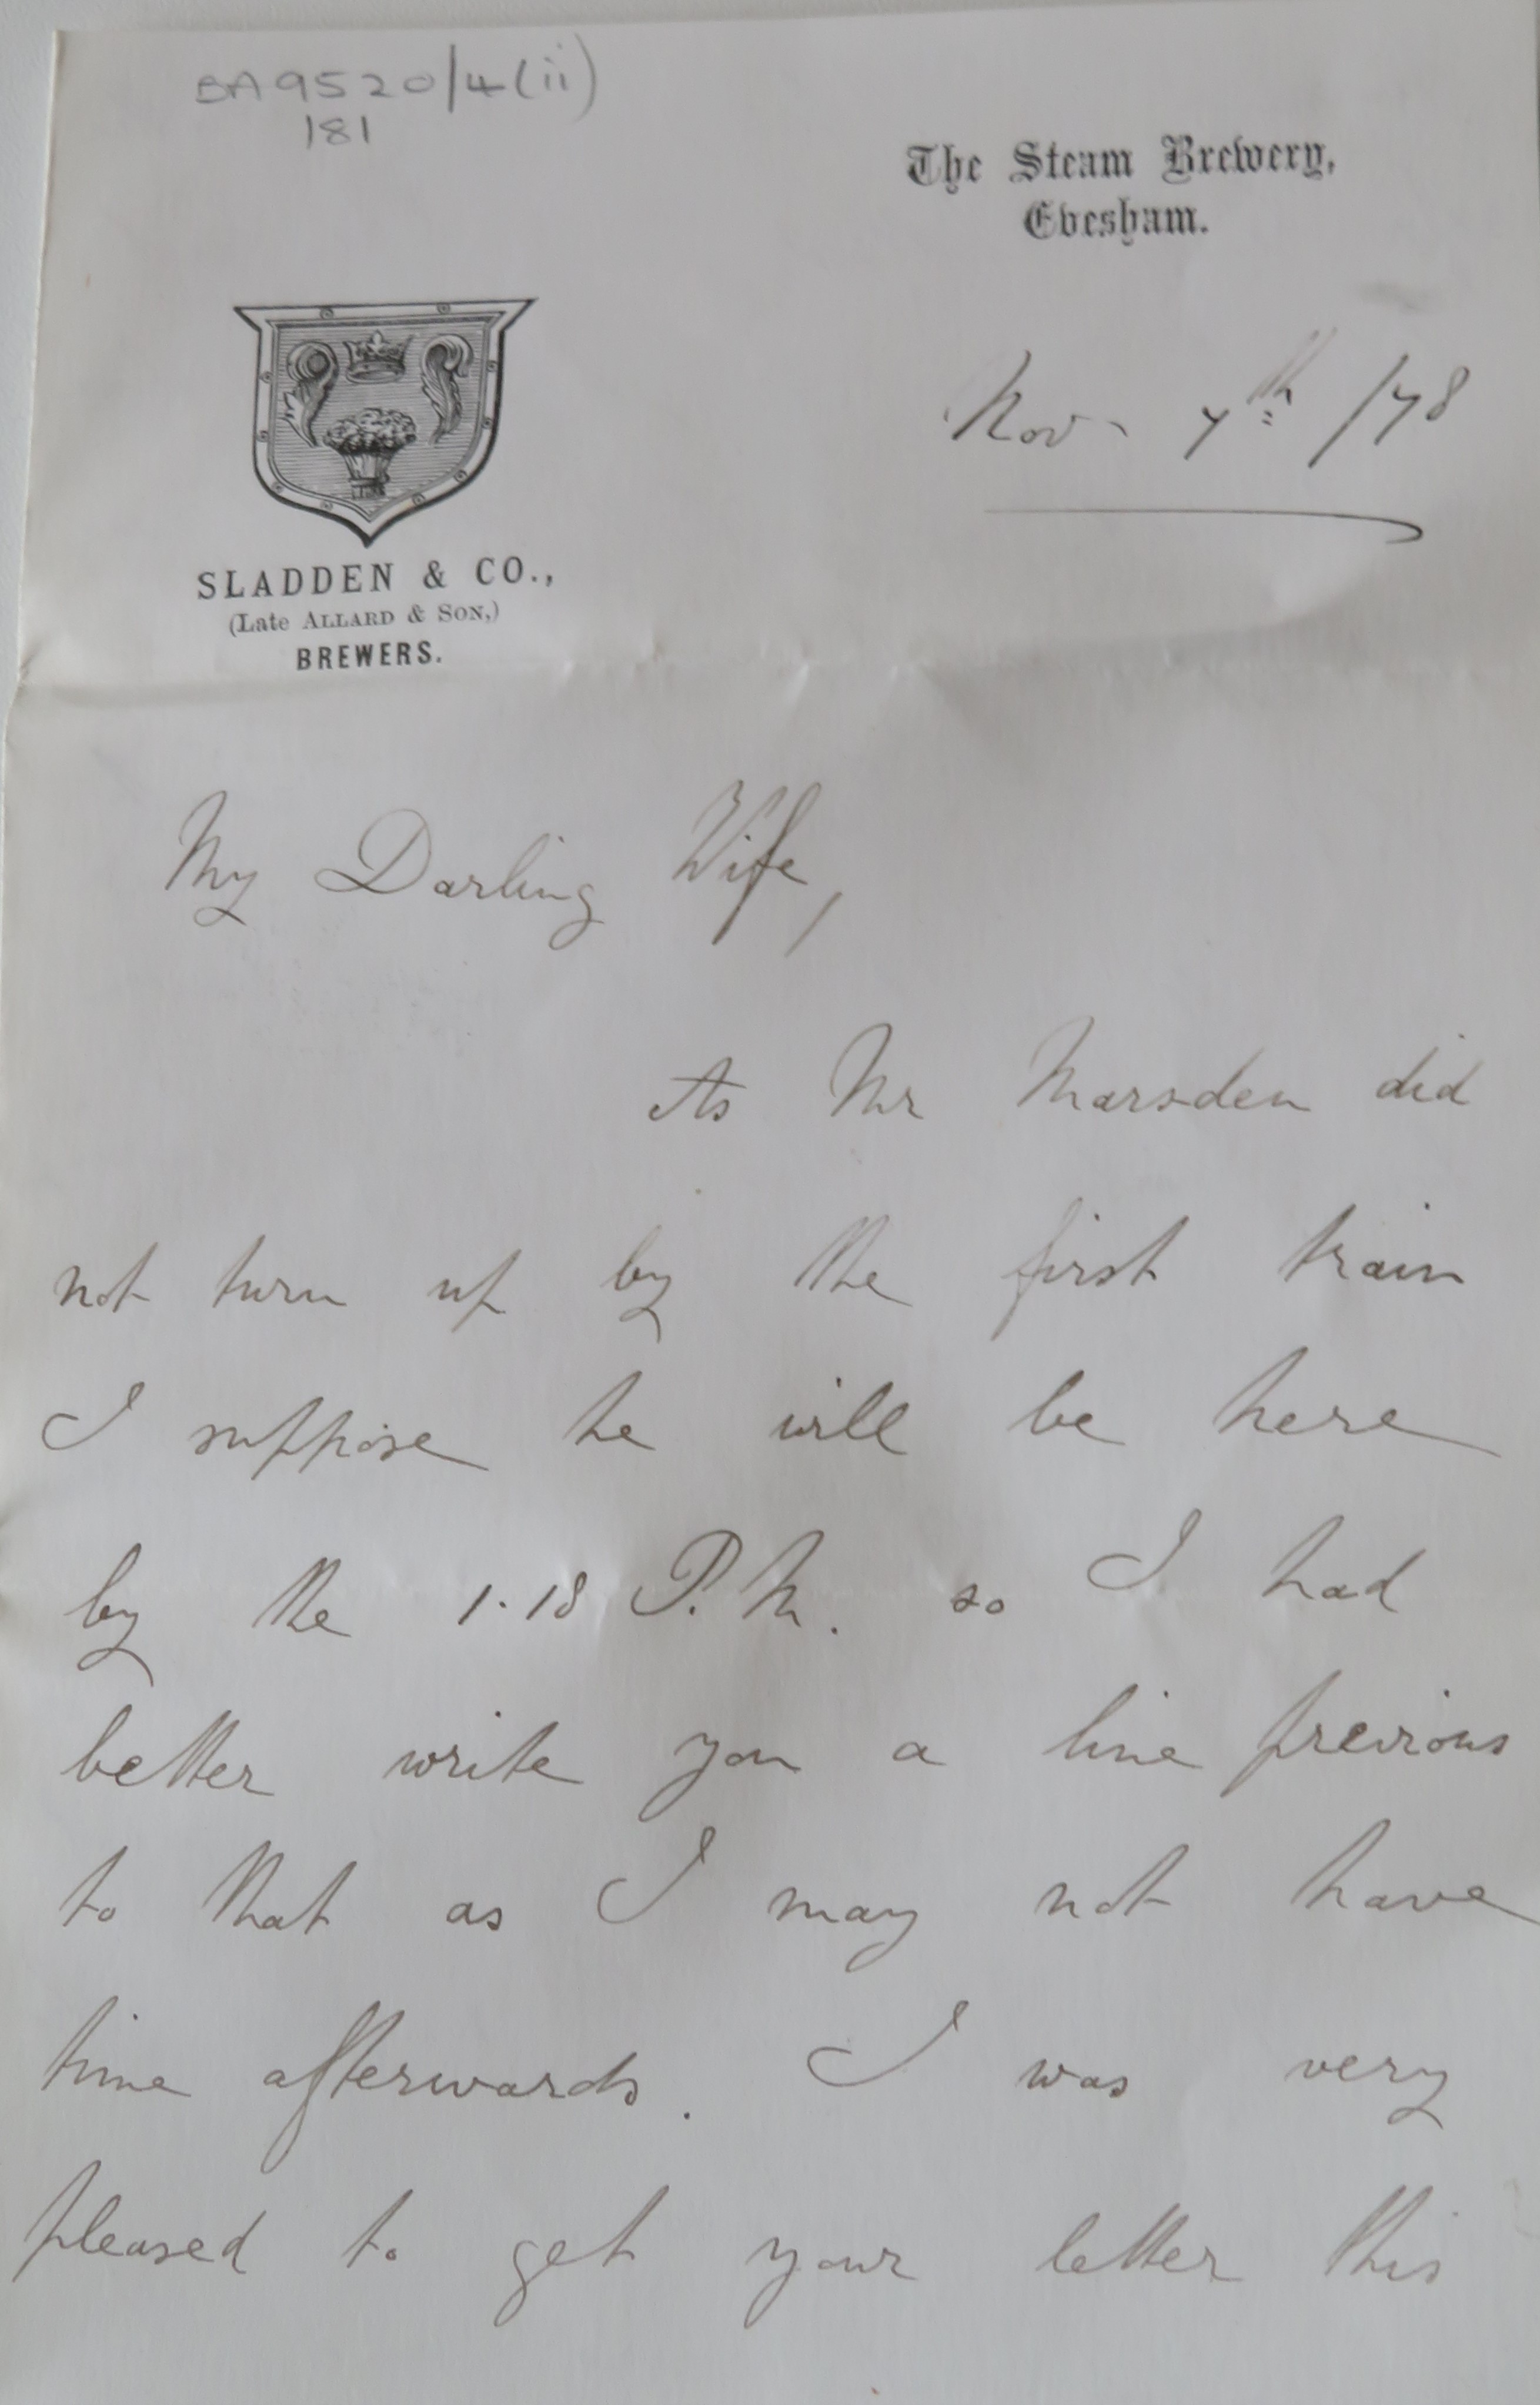 BA9520/4(ii)
181
The Steam Brewery,
Evesham.
Nov- 7th /78
SLADDEN & CO.,
(Late ALLARD & SON,)
BREWERS.
My Darling Wife,
As Mr Marsden did
not turn up by the first train
I suppose he will be here
by the 1.18 P.M. so I had
better write you a line previous
to that as I may not have
time afterwards. I was very
pleased to get your letter this